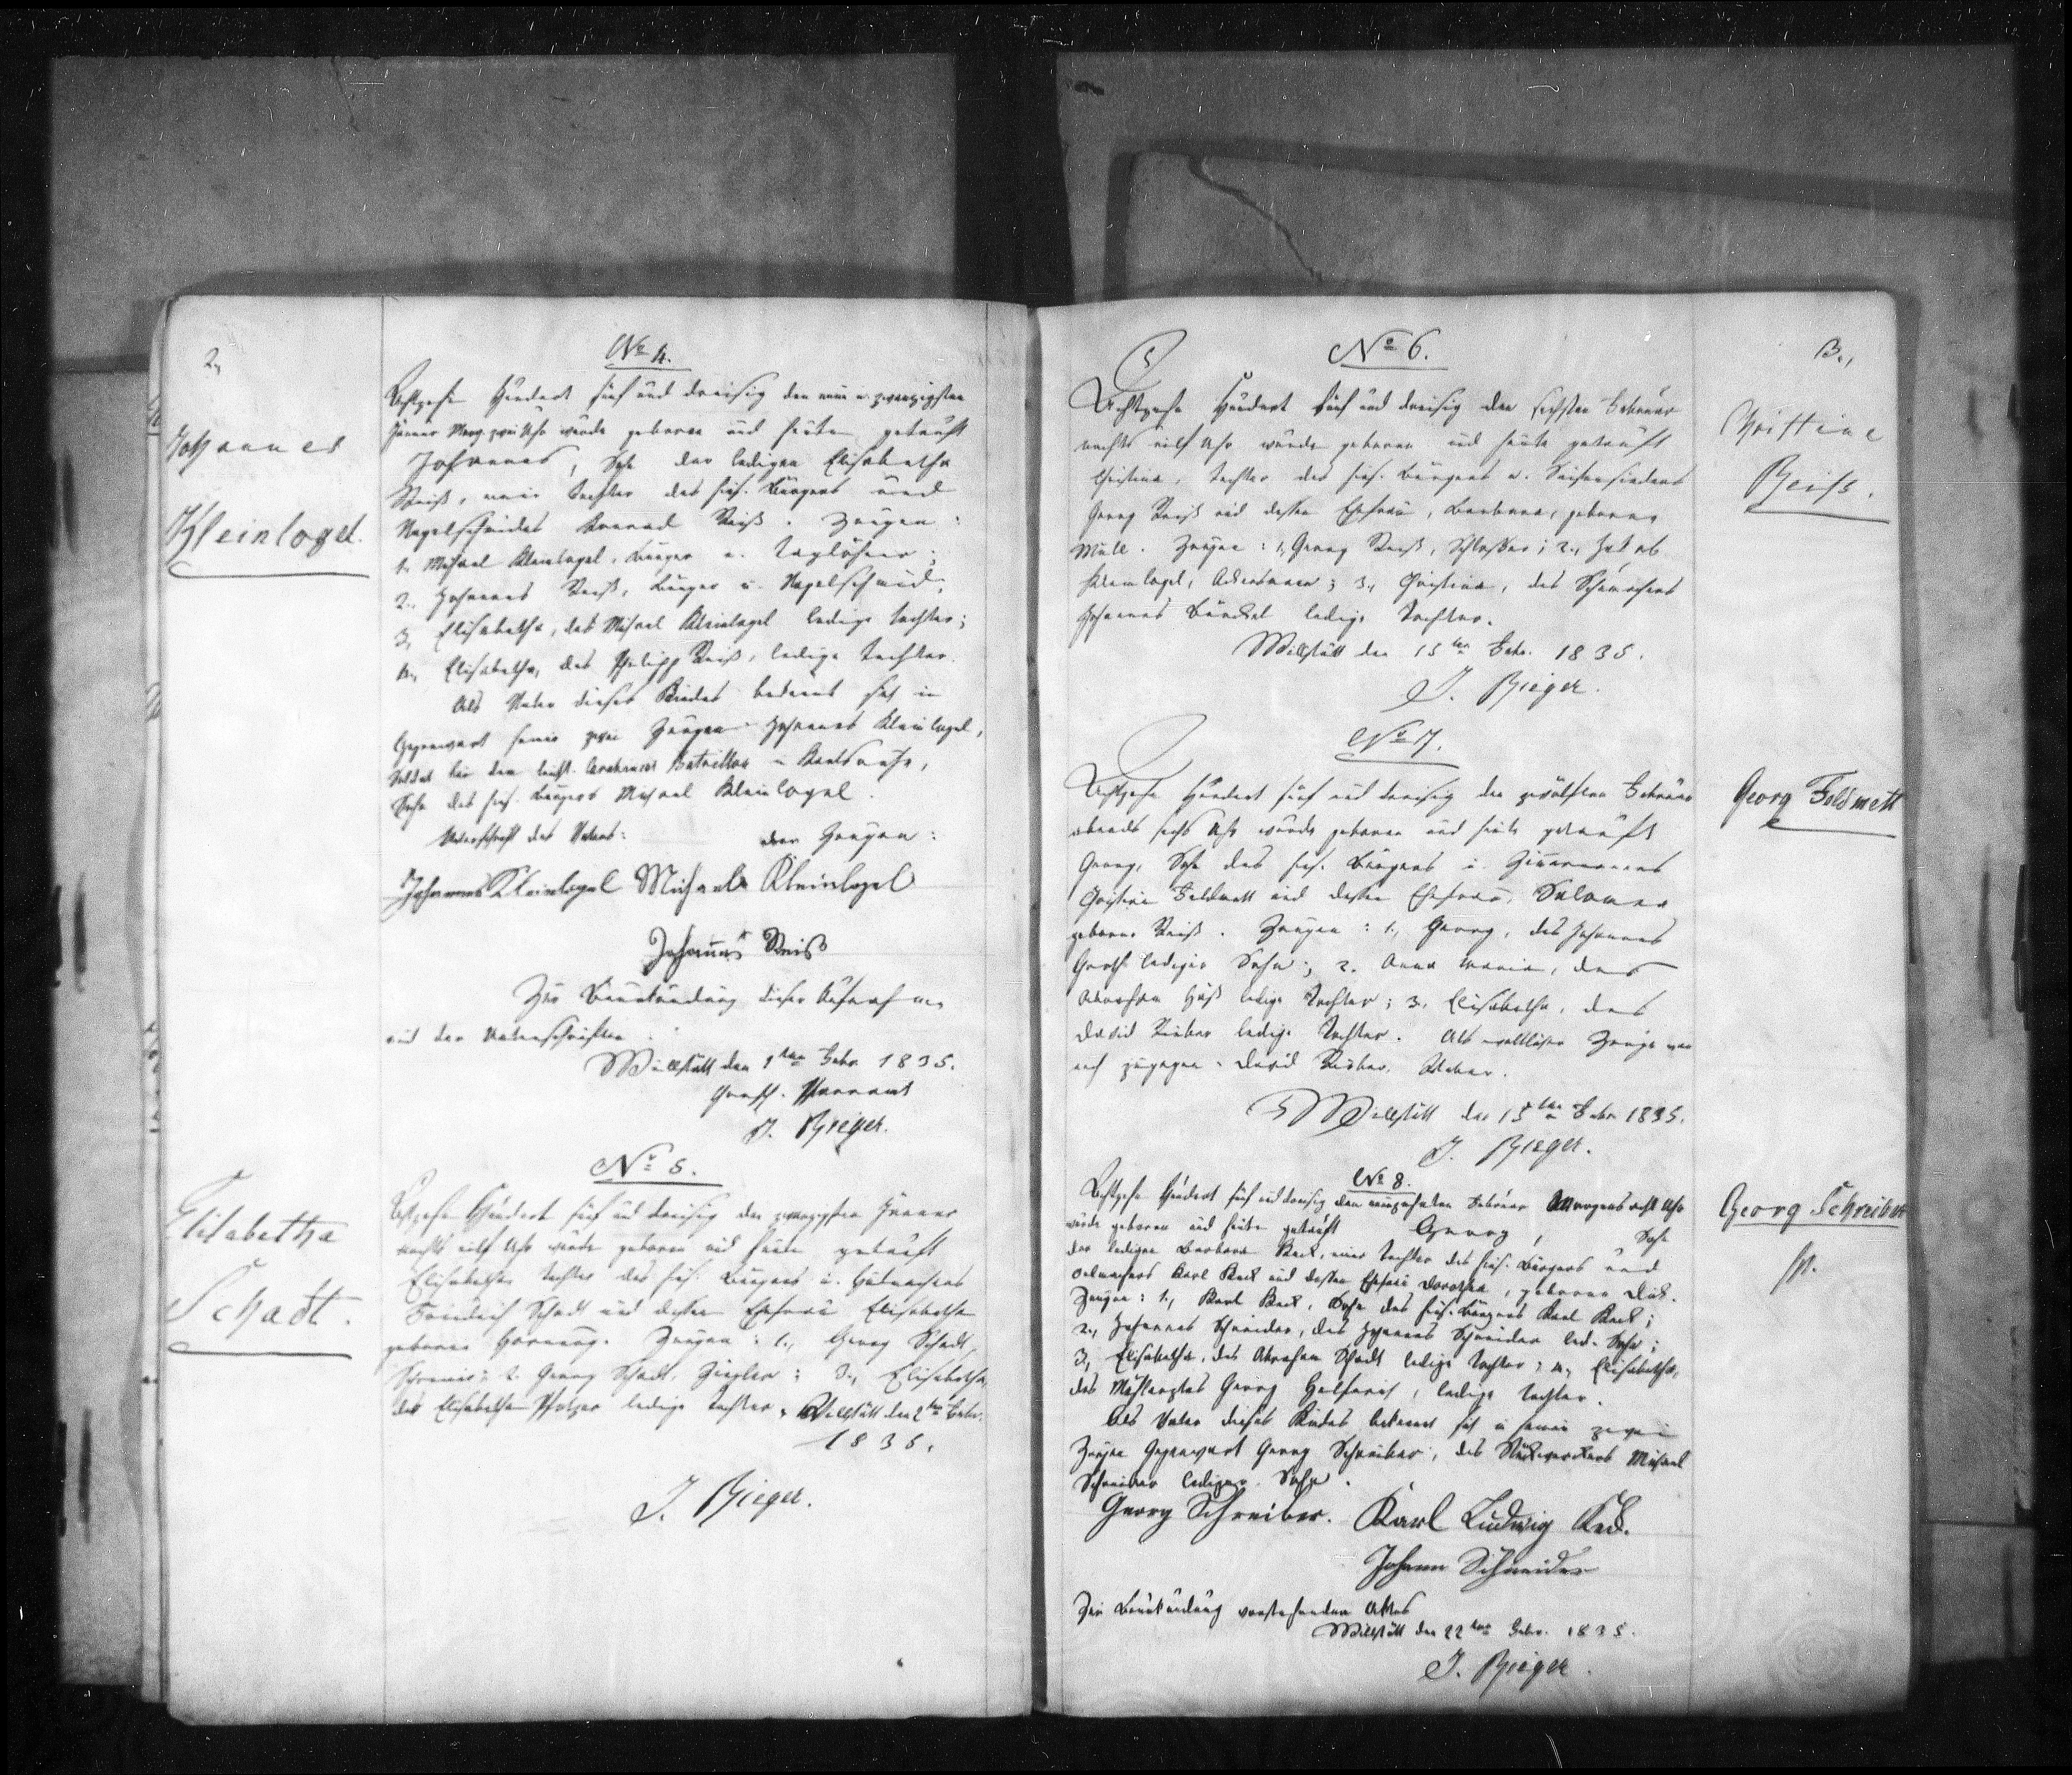 2,
No 4.
Johannes
Kleinlogel.
Achtzehn Hundert fünf und dreisig den neun u. zwanzigsten
Jänner Morg. zwei Uhr wurde geboren und heute getauft
Johannes, Sohn der ledigen Elisabetha
Reiß, einer Tochter des hies. Bürgers und
Nagelschmides Konrad Reiß. Zeugen:
1. Michael Kleinlogel, Bürger u. Taglöhner;
2., Johannes Reiß, Bürger u. Nagelschmid;
3, Elisabetha, des Michael Kleinlogel ledige Tochter;
4., Elisabetha, des Philipp Reiß, ledige Tochter.
Als Vater dieses Kindes bekennt sich in
Gegenwart seiner zwei Zeugen Johannes Kleinlogel,
Soldat bei dem leicht. Infanterie Bataillon in Karlsruhe,
Sohn des hies. Bürgers Michael Kleinlogel.
Unterschrift des Vaters: der Zeugen:
Johannes Kleinlogel Michael Kleinlogel
Johannes Reiß
Zur Beurkundung dieser Aufnahme
und der Unterschriften
Willstätt den 1ten Febr. 1835.
Pfarramt
J. Rieger.
No 5.
Elisabetha
Schadt.
Achtzehn Hundert fünf und dreisig den zwanzigsten Jänner
nachts eilf Uhr wurde geboren und heute getauft
Elisabetha Tochter des hies. Bürgers u. Hutmachers
Friedrich Schadt und dessen Ehefrau Elisabetha
geborne Hornung. Zeugen: 1., Georg Schadt,
Schreiner; 2. Georg Schadt, Ziegler; 3., Elisabetha,
des Elisabetha Pfotzer ledige Tochter. Willstätt den 2ten Febr.
1835.
J. Rieger.
No 6.
3.,
Christine
Reiss.
Achtzehn Hundert fünf und dreisig den sechsten Februar
nachts eilf Uhr wurde geboren und heute getauft
Christina, Tochter des hies. Bürgers u. Seifensieders
Georg Reiß und dessen Ehefrau, Barbara, geborne
Müll. Zeugen: 1, Georg Reiß, Schlosser; 2., Jakob
Kleinlogel, Ackersmann; 3., Christina, des Schumachers
Johannes Bünckel ledige Tochter.
Willstätt den 15ten Febr. 1835.
J. Rieger.
No 7.
Georg Feldmett
Achtzehn Hundert fünf und dreisig den zwölften Februar
abends sechs Uhr wurde geboren und heute getauft
Georg, Sohn des hies. Bürgers u. Zimmermanns
Christian Feldmett und dessen Ehefrau, Salomea
geborne Reiß. Zeugen: 1., Georg, des Johannes
lediger Sohn; 2. Anna Maria, des
Abraham Huß ledige Tochter; 3, Elisabetha, des
David Rieber ledige Tochter. Als Zeuge war
noch zugegen David Rieber, Weber.
Willstätt den 15ten Febr. 1835.
J. Rieger.
No 8.
Georg Schreiber
Achtzehn Hundert fünf und dreisig den neunzehnten Februar Morgens acht Uhr
wurde geboren und heute getauft Georg, Sohn
der ledigen Barbara Keck, einer Tochter des hies. Bürgers und
Karl Keck und dessen Ehefrau Dorothea, geborne
Zeugen: 1., Karl Keck, Sohn des hies. Bürgers Karl Keck;
2., Johannes Schneider, des Johannes Schneider led. Sohn;
3, Elisabetha, des Abraham Schadt ledige Tochter; 4., Elisabetha,
des Georg Helfrich, ledige Tochter.
Als Vater dieses Kindes bekennt sich in seiner zwei
Zeugen Gegenwart Georg Schreiber, des Michael
Schreiber lediger Sohn.
Georg Schreiber. Karl Ludwig Keck.
Johann Schneider
Zur Beurkundung vorstehenden Aktes
Willstätt den 22ten Febr. 1835.
J. Rieger.